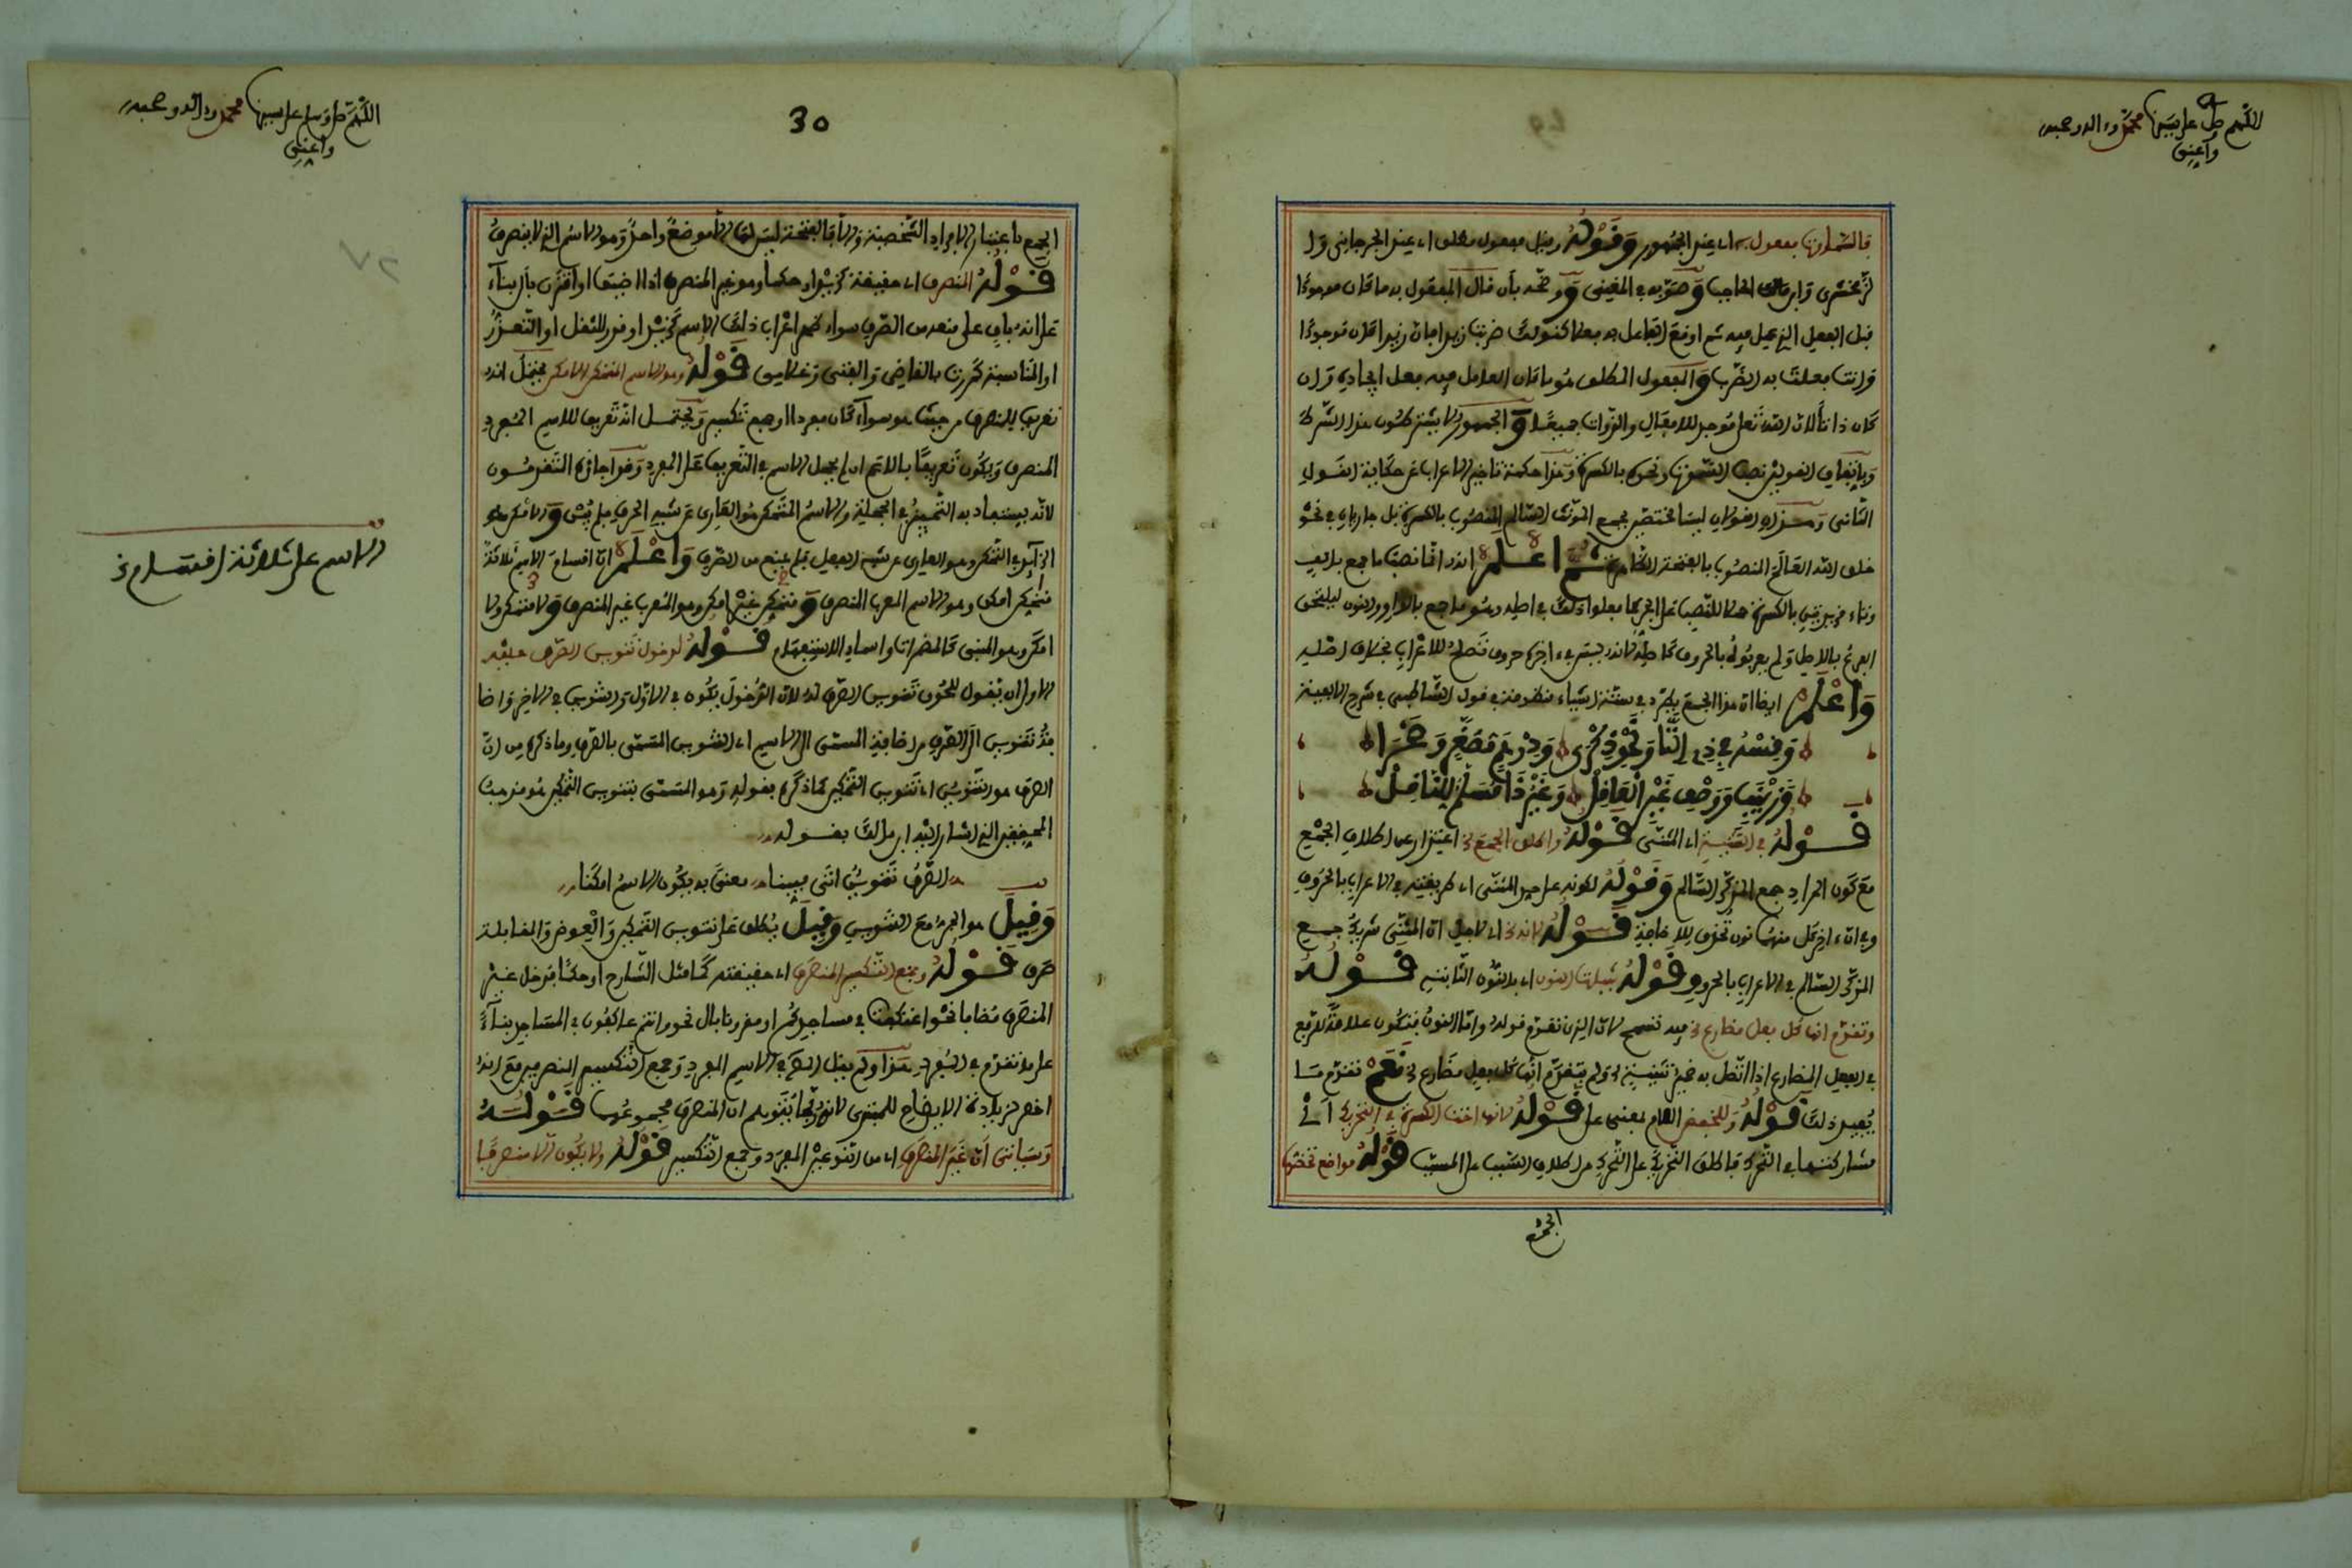 اللهم صل على سيدنا محمد وءاله وصحبه
وأعني
فالسموات مفعول به اي عند الجمهور وقوله وقيل مفعول مطلق اي عند الجرجاني وا
لزمخشري وابن الحاجب وصوبه في المغني ووضحه بأن قال المفعول به ما كان موجودا
قبل الفعل الذي عمل فيه ثم اوقع الفاعل به فعلا كقولك ضربت زيدا فان زيدا كان موجودا
وانت فعلت به الضرب والمفعول المطلق هو ما كان العامل فيه فعل ايجاده وان
كان ذاتا لان الله تعلى موجد للافعال والذوات جميعا والجمهور لا يشترطون هذا الشرط
القولين نصب السموات ونحوه بالكسرة وهذا حكمة تاخير الاعراب عن حكاية القول
الثاني القولان ليسا مختصين بجمع المؤنث السالم المنصوب بالكسرة بل جاريان في نحو
خلق الله العالم المنصوب بالفتحة الظاهرة ثم اعلم انه انما نصب ما جمع بالف
وتاء مزيدتين بالكسرة حملا للنصب على الجر كما فعلوا ذلك في اصله وهو ما جمع بالواو والنون ليلحق
الفرع بالاصل ولم يعربوه بالحروف كاصله لانه ليس في ءاخره حروف تصلح للاعراب بخلاف اصله
واعلم ايضا ان هذا الجمع يطرد في ستة اشياء منظومة في قول الشاطبي في شرح الالفية
وقسه في ذي التا ونحو ذكرى ودرهم مصغر وصحرا
وزينب ووصف غير العاقل وغير ذا مسلم للناقل
قوله في التثنية اي المثنى قوله واطلق الجمع الخ اعتذار عن اطلاق الجمع
مع كون المراد جمع المذكر السالم وقوله لكونه على حد المثنى اي طريقته في الاعراب بالحروف
وفي ان ءاخر كل منهما نون تحذف للاضافة قوله لانه الخ اي لاجل ان المثنى شريك جمع
المذكر السالم في الاعراب بالحروف قوله بتلك النون اي بالنون الثابتة قوله
وتقدم انها كل فعل مضارع الخ فيه تسمح لان الذي تقدم قوله واما النون فتكون علامة للرفع
في الفعل المضارع اذا اتصل به ضمير تثنية الخ ولم يتقدم انها كل فعل مضارع الخ نعم تقدم ما
يفيد ذلك قوله وللخفض اللام بمعنى على قوله لانها اخت الكسرة في التحريك اي في
مشاركتها في التحرك فاطلق التحريك على التحرك من اطلاق السبب على المسبب قوله مواضع تختص
الجمع
30
اللهم صل وسلم على سيدنا محمد وءاله وصحبه
وأعني
الجمع باعتبار الافراد الشخصية والا فالفتحة ليس لها الا موضع واحد وهو الاسم الذي لا ينصرف
قوله المنصرف اي حقيقة كزيد او حكما وهو غير المنصرف اذا اضيف او اقترن بأل بناء
على انه باق على منعه من الصرف سواء ظهر اعراب ذلك الاسم كزيد او قدر للثقل او التعذر
او المناسبة كمررت بالقاضي والفتى وغلامي قوله وهو الاسم المتمكن الامكن يحتمل انه
تعريف للمنصرف من حيث هو سواء كان مفردا او جمع تكسير ويحتمل انه تعريف للاسم المفرد
المنصرف ويكون تعريفا بالاعم اذ لم يجعل الاسم في التعريف على المفرد وقد اجازه المتقدمون
لانه يستفاد به التمييز في الجملة والاسم المتمكن هو العاري عن شبه الحرف فلم يبن والامكن هو
الزائد في التمكن وهو العاري عن شبه الفعل فلم يمنع من الصرف واعلم ان اقسام الاسم ثلاثة
متمكن امكن وهو الاسم المعرب المنصرف ومتمكن غير امكن وهو المعرب غير المنصرف ولا متمكن ولا
امكن وهو المبني كالمضمرات واسماء الاستفهام قوله لدخول تنوين الصرف عليه
الاولى ان يقول للحوق تنوين الصرف له لان الدخول يكون في الاول والتنوين في الاخير واضا
فة تنوين الى الصرف من اضافة المسمى الى الاسم اي التنوين المسمى بالصرف وما ذكره من ان
الصرف هو التنوين اي تنوين التمكين كما ذكره بقوله وهو المسمى بتنوين التمكين هو مذهب
المحققين الذي اشار اليه ابن مالك بقوله
الصرف تنوين اتى مبينا معنى به يكون الاسم امكنا
وقيل هو الجر مع التنوين وقيل يطلق على تنوين التمكين والعوض والمقابلة
صرف قوله وجمع التكسير المنصرف اي حقيقته كما مثل الشارح او حكما فدخل غير
المنصرف مضافا نحو اعتكفت في مساجدكم او مقرونا بال نحو وانتم عاكفون في المساجد بناء
على ما تقدم في المفرد هذا ولم يقل الشارح في الاسم المفرد وجمع التكسير المنصرفين مع انه
اخصر لزيادة الايضاح للمبتدئ لانه ربما يتوهم ان المنصرف مجموعهما قوله
وسياتي ان غير المنصرف اي من النوعين المفرد وجمع التكسير قوله ولا يكون الا منصرفا
الاسم على ثلاثة اقسام الخ